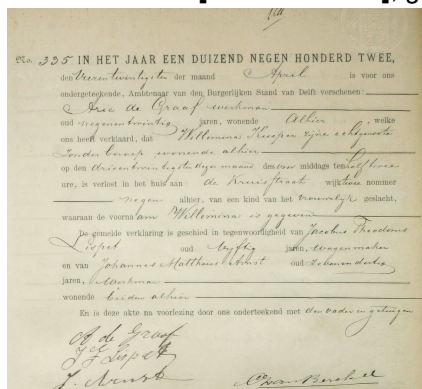 No. 335 IN HET JAAR EEN DUIZEND NEGEN HONDERD TWEE,
den Vierentwintigsten der maand April is voor ons
ondergeteekende, Ambtenaar van den Burgerlijken Stand van Delft verschenen:
Arie de Graaf werkman
oud negenentwintig jaren, wonende Alhier, welke
ons heeft verklaard, dat Willemina Kuiper zijne echtgenoote
zonder beroep wonende alhier
op den drieentwintigsten dezer maand des voor middags ten half twee
ure, is verlost in het huis aan de Kruisstraat wijk twee nummer
negen alhier, van een kind van het vrouwelijk geslacht,
waaraan de voornaam Willemina is gegeven
De gemelde verklaring is geschied in tegenwoordigheid van Jacobus Theodorus
Lispet oud vijftig jaren, wagenmaker
en van Johannes Mattheus Arnst oud zevenendertig
jaren, Werkman
wonende beiden alhier
En is deze akte na voorlezing door ons onderteekend met den vader en getuigen
A de Graaf
Lispet
J. Arnst